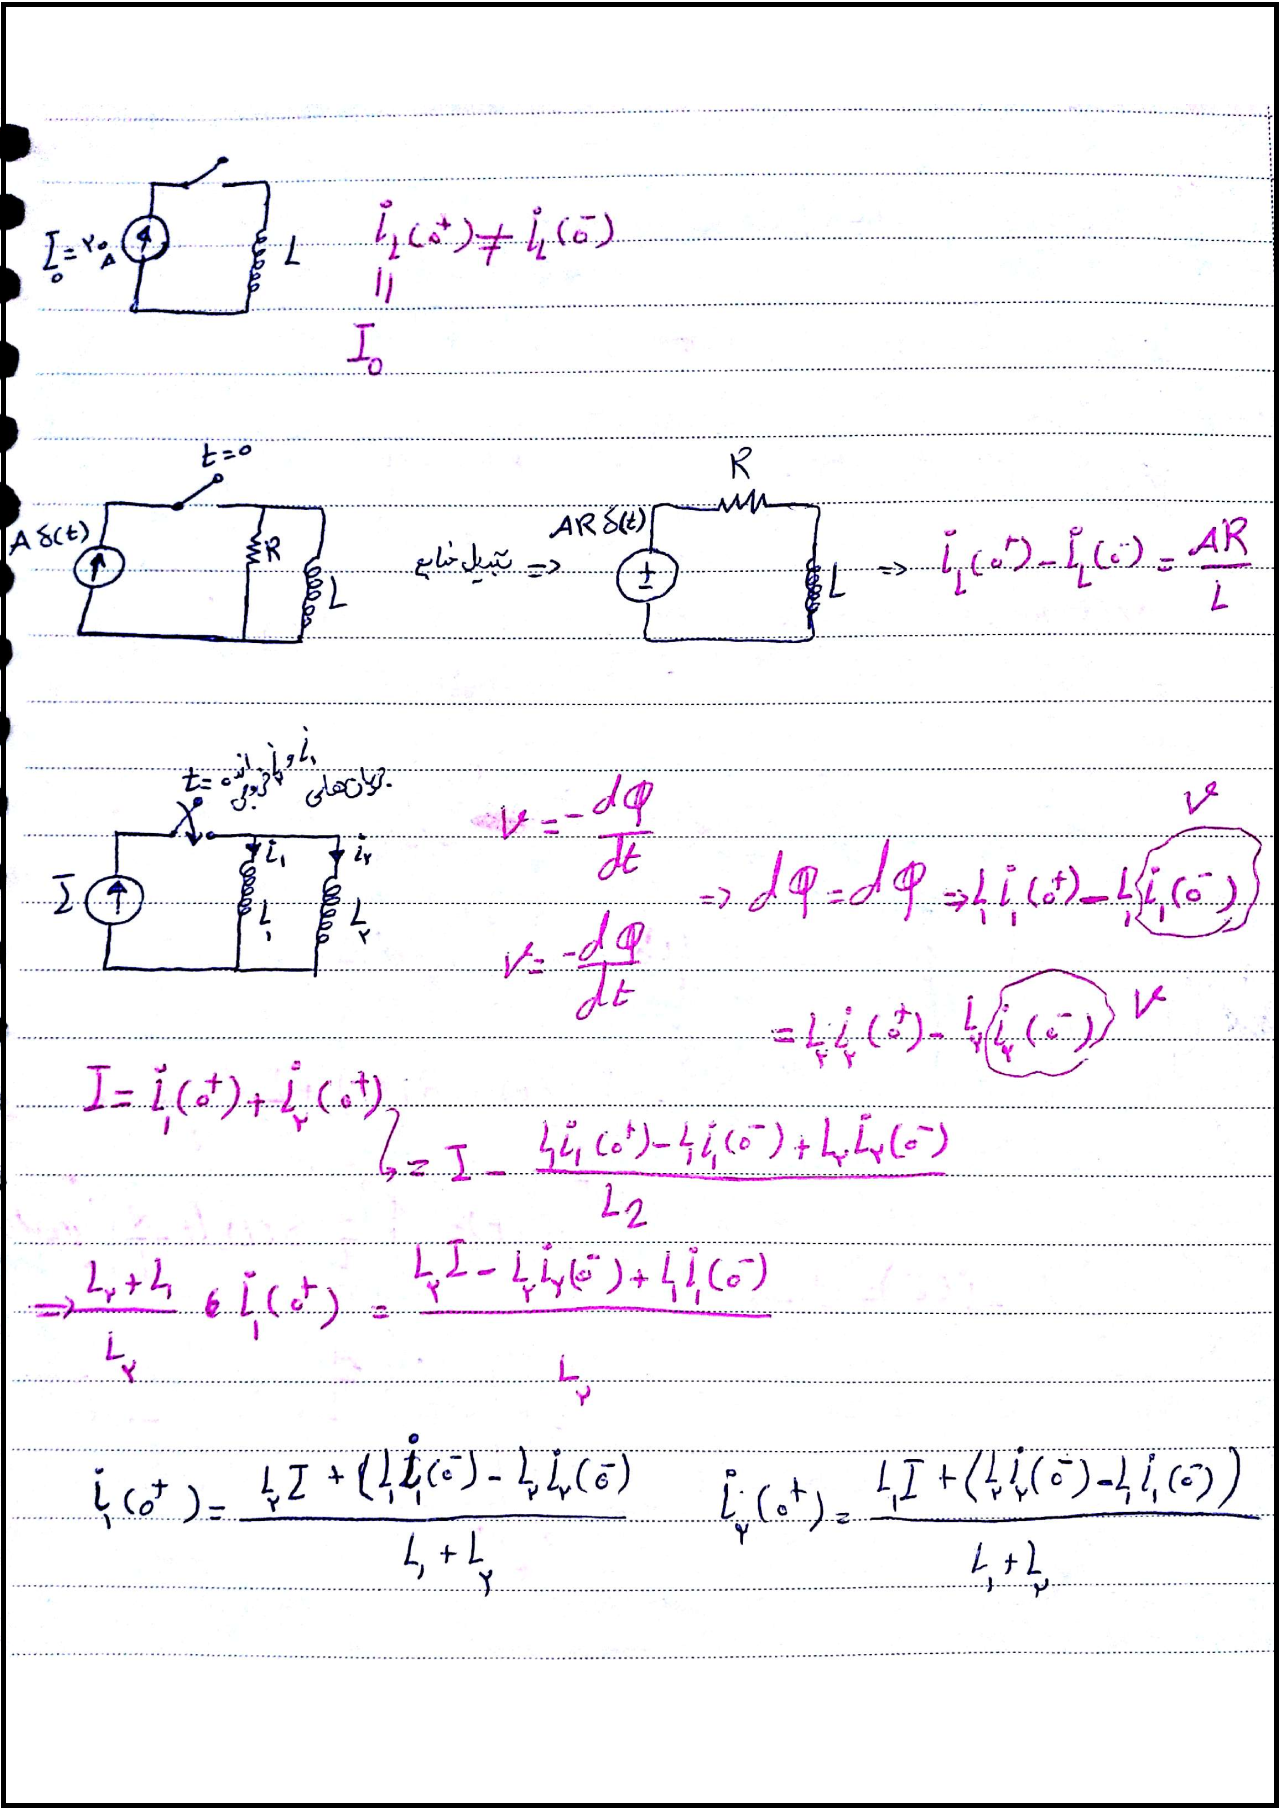 I₀ = ۲۰ A
L
i_L(0⁺) ≠ i_L(0⁻)
||
I₀
t=0
A δ(t)
R
L
تبدیل منابع ⇒
R
AR δ(t)
L
⇒ i_L(0⁺) - i_L(0⁻) = AR / L
جریان‌های i₁ و i₂
t=0
I
i₁
i₂
L₁
L₂
v = -dφ/dt
v = -dφ/dt
⇒ dφ = dφ ⇒ L₁i₁(0⁺) - L₁i₁(0⁻)
= L₂i₂(0⁺) - L₂i₂(0⁻)
I = i₁(0⁺) + i₂(0⁺)
= I - (L₁i₁(0⁺) - L₁i₁(0⁻) + L₂i₂(0⁻)) / L2
⇒ (L₂ + L₁) / L₂ i₁(0⁺) = (L₂I - L₂i₂(0⁻) + L₁i₁(0⁻)) / L₂
i₁(0⁺) = L₂I + (L₁i₁(0⁻) - L₂i₂(0⁻) / L₁ + L₂
i₂(0⁺) = L₁I + (L₂i₂(0⁻) - L₁i₁(0⁻)) / L₁ + L₂